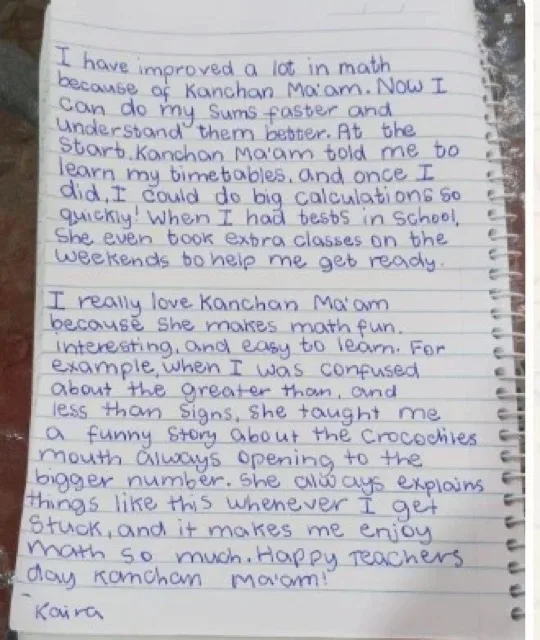 I have improved a lot in math
because of Kanchan Ma'am. Now I
can do my sums faster and
understand them better. At the
start, Kanchan Ma'am told me to
learn my timetables, and once I
did, I could do big calculations so
quickly! When I had tests in school,
she even took extra classes on the
weekends to help me get ready.
I really love Kanchan Ma'am
because she makes math fun,
interesting, and easy to learn. For
example, when I was confused
about the greater than, and
less than signs, she taught me
a funny story about the crocodiles
mouth always opening to the
bigger number. She always explains
things like this whenever I get
stuck, and it makes me enjoy
math so much. Happy Teachers
day Kanchan Ma'am!
-
Kaira